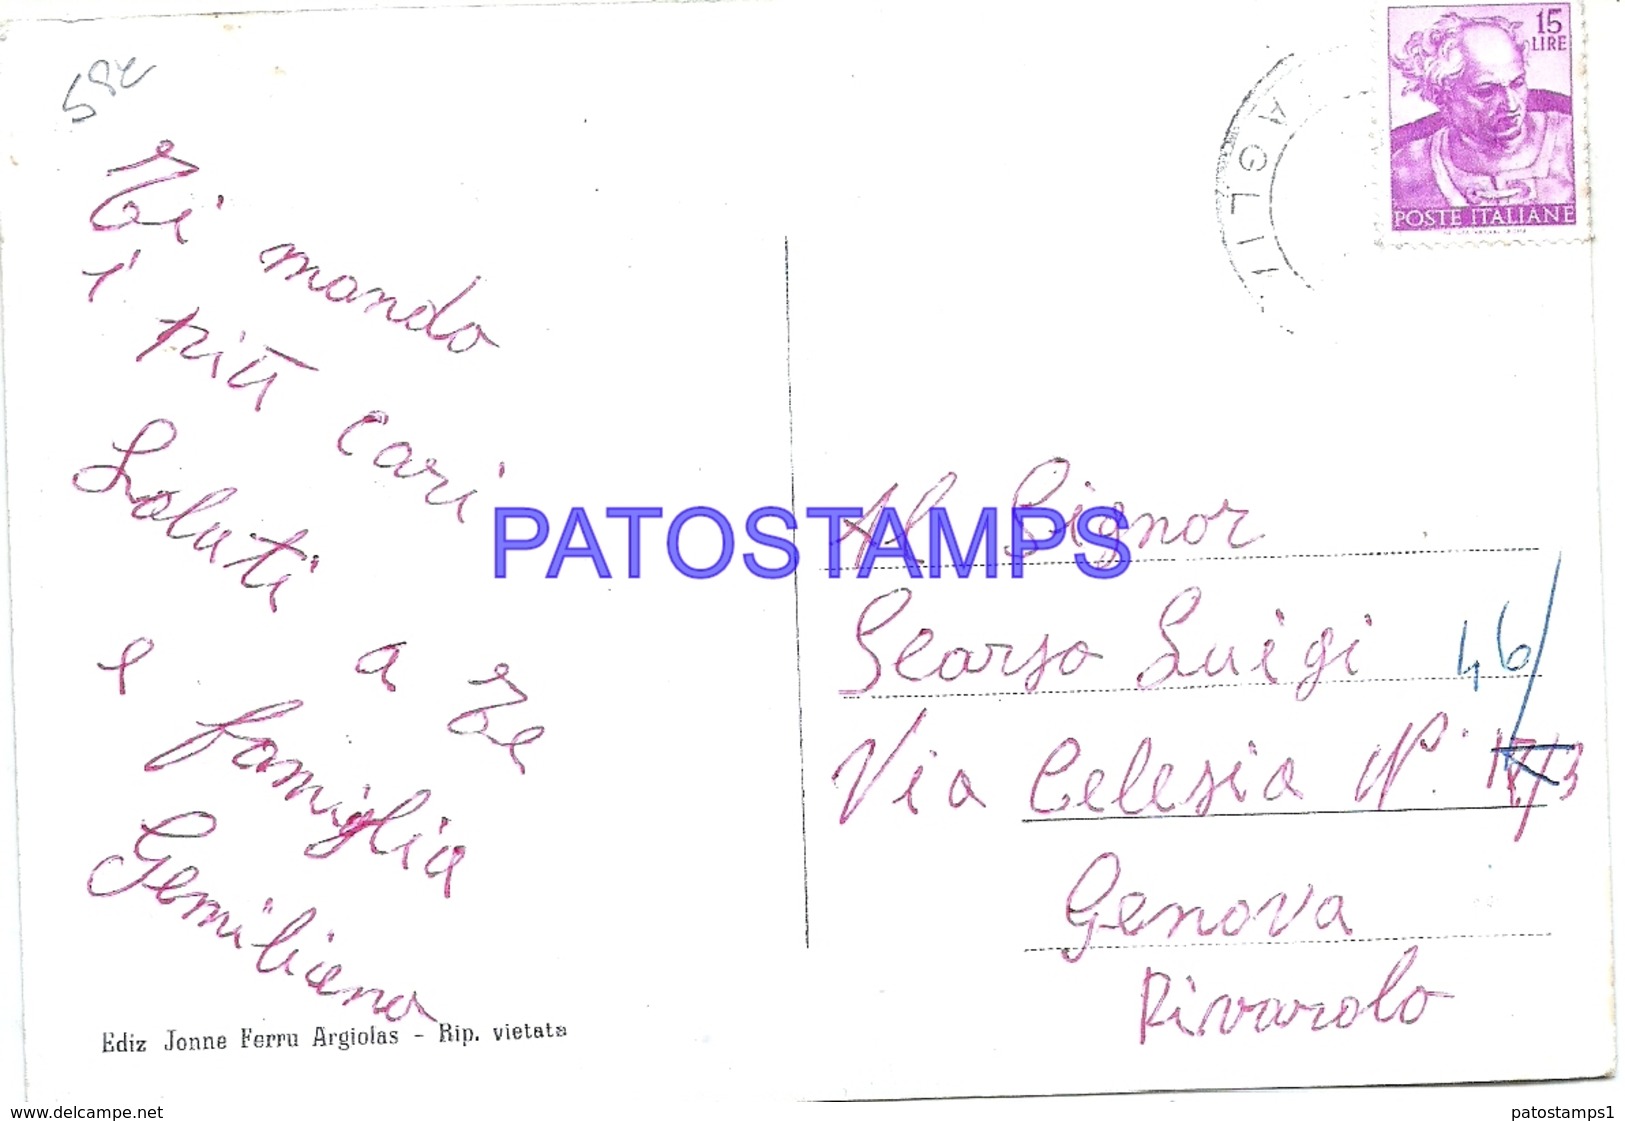 58e
15
LIRE
POSTE ITALIANE
AGLI
Ti mando
i più cari
Saluti
a Te
e famiglia
Gemiliano
Al Signor
Scarso Luigi 46/
Via Celesia N.
Genova
Rivarolo
PATOSTAMPS
Ediz Jonne Ferru Argiolas - Rip. vietata
www.delcampe.net
patostamps1